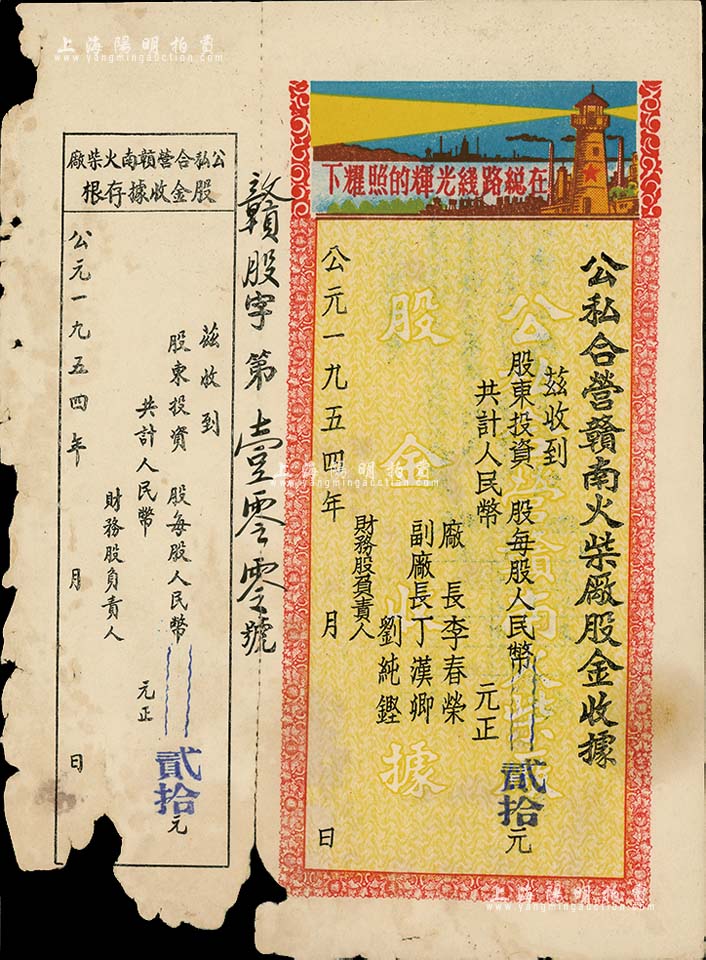 上海陽明拍賣
www.yangmingauction.com
在総路綫光輝的照耀下
公私合營贛南火柴廠股金收據
茲收到
股東投資 股每股人民幣貳拾元
共計人民幣 元正
廠長李春榮
副廠長丁漢卿
劉純鏗
財務股負責人
公元一九五四年 月 日
公私合營贛南火柴廠
股金收據
贛股字第壹零零號
公私合營贛南火柴廠
股金收據存根
茲收到
股東投資 股每股人民幣貳拾元
共計人民幣 元正
財務股負責人
公元一九五四年 月 日
上海陽明拍賣
www.yangmingauction.com
上海陽明拍賣
www.yangmingauction.com